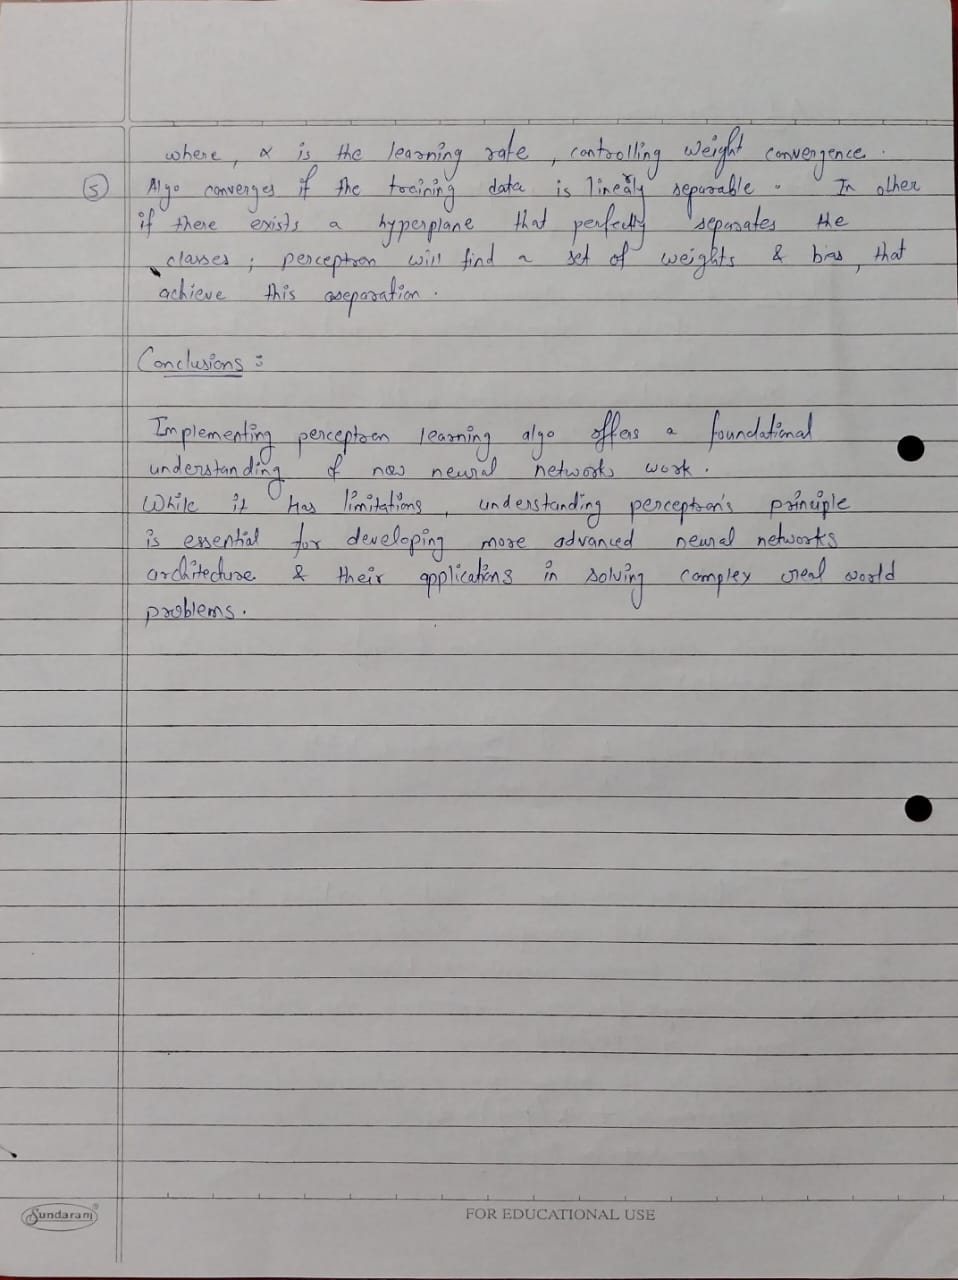 where, α is the learning rate, controlling weight convergence.
⑤ Algo converges if the training data is linearly separable. In other
if there exists a hyperplane that perfectly separates the
classes; perceptron will find a set of weights & bias, that
achieve this seperation.
Conclusions:
Implementing perceptron learning algo offers a foundational
understanding of how neural networks work.
While it has limitations, understanding perceptron's principle
is essential for developing more advanced neural networks
architecture & their applications in solving complex real world
problems.
Sundaram®
FOR EDUCATIONAL USE